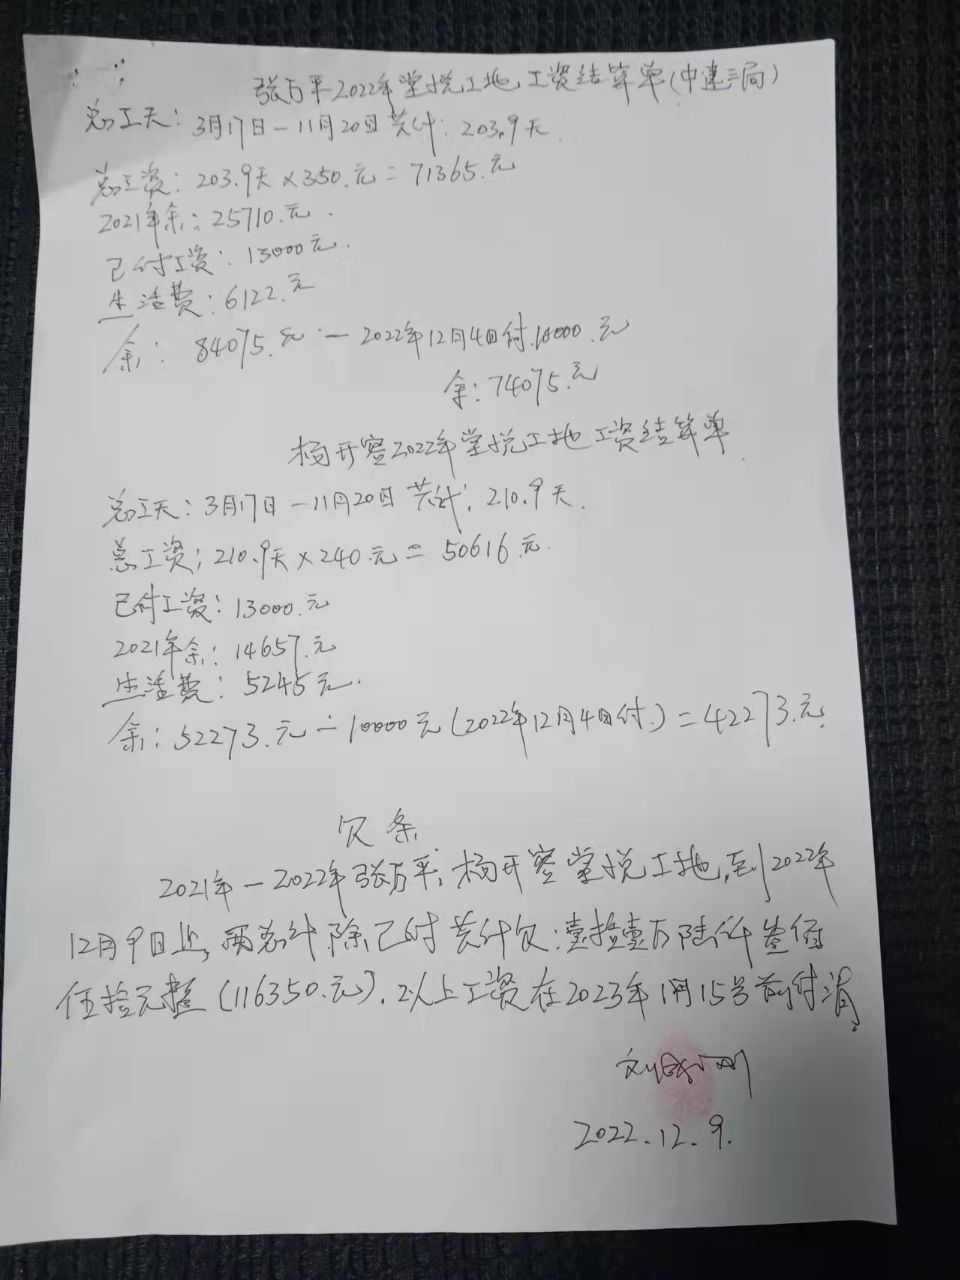 张万平2022年堂悦工地工资结算单(中建三局)
总工天：3月17日—11月20日共计：203.9天
总工资：203.9天×350.元=71365.元
2021年余：25710.元.
已付工资：13000元.
生活费：6122.元
余：84075.元—2022年12月4日付.10000.元
余：74075.元
杨开窖2022年堂悦工地工资结算单
总工天：3月17日—11月20日共计：210.9天.
总工资：210.9天×240.元=50616元.
已付工资：13000.元
2021年余：14657.元
生活费：5245元.
余：52273.元—10000元(2022年12月4日付.)=42273.元.
欠条
2021年—2022年张万平，杨开窖堂悦工地，到2022年
12月9日止，两总计除已付共计欠：壹拾壹万陆仟叁佰
伍拾元整(116350.元).以上工资在2023年1月15号前付清.
2022.12.9.